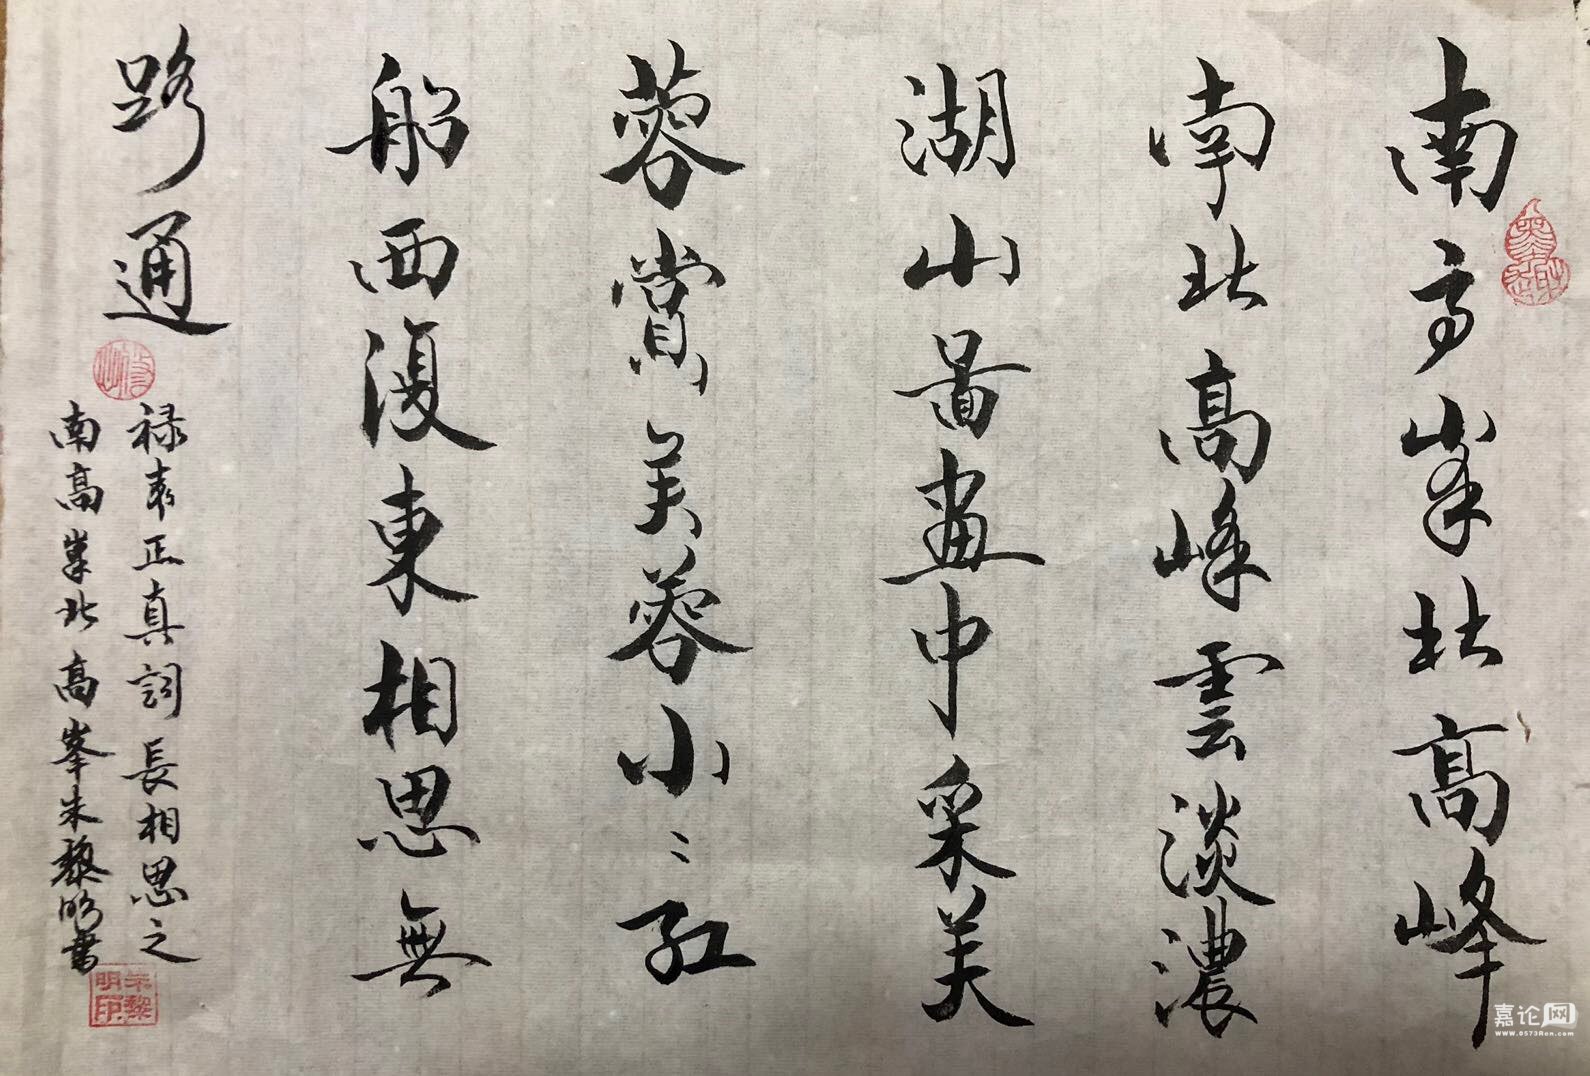 南高峯北高峰
南北高峰雲淡濃
湖山啚畫中采芙
蓉賞芙蓉小〻紅
船西復東相思無
路通
禄袁正真詞長相思之
南高峯北高峯朱黎明書
朱黎明印
嘉论网
www.0573Ren.com